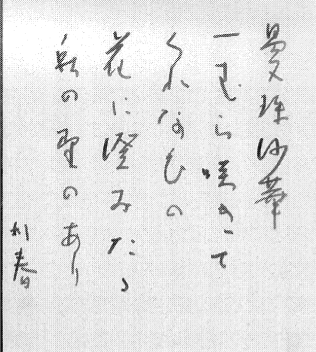 曼珠沙華
一むら咲きて
くれなゐの
花に澄みたる
秋の聖のあり